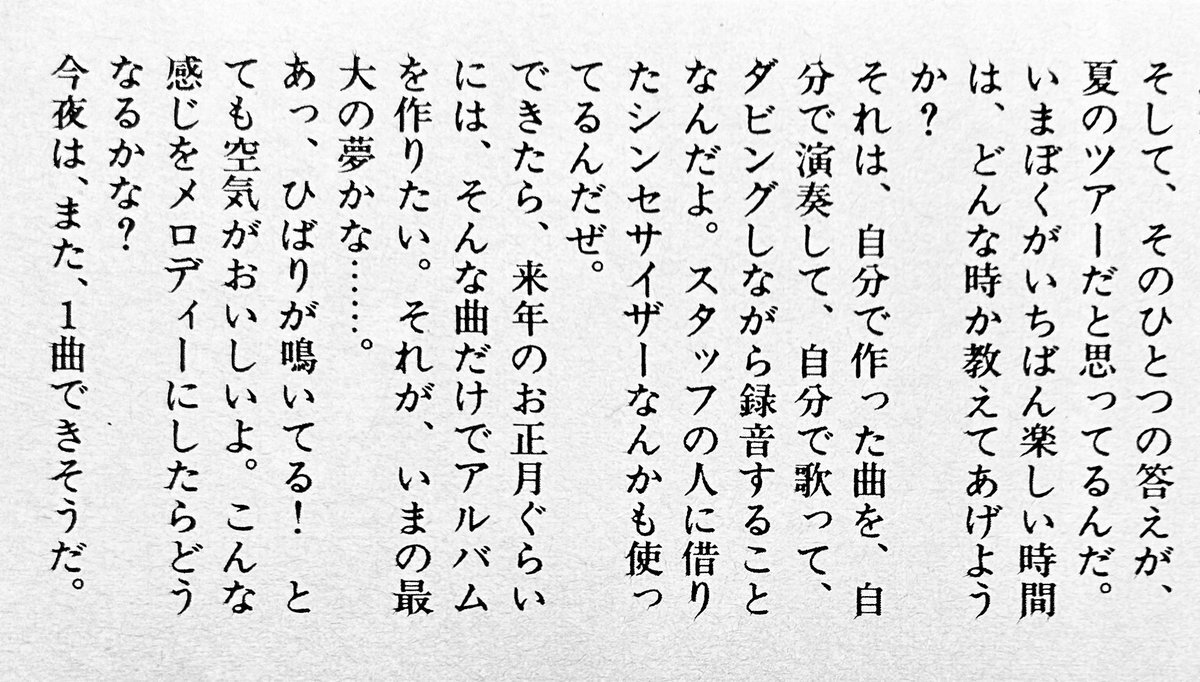 そして、そのひとつの答えが、
夏のツアーだと思ってるんだ。
いまぼくがいちばん楽しい時間
は、どんな時か教えてあげよう
か?
それは、自分で作った曲を、自
分で演奏して、自分で歌って、
ダビングしながら録音すること
なんだよ。スタッフの人に借り
たシンセサイザーなんかも使っ
てるんだぜ。
できたら、来年のお正月ぐらい
には、そんな曲だけでアルバム
を作りたい。それが、いまの最
大の夢かな……。
あっ、ひばりが鳴いてる! と
ても空気がおいしいよ。こんな
感じをメロディーにしたらどう
なるかな?
今夜は、また、1曲できそうだ。